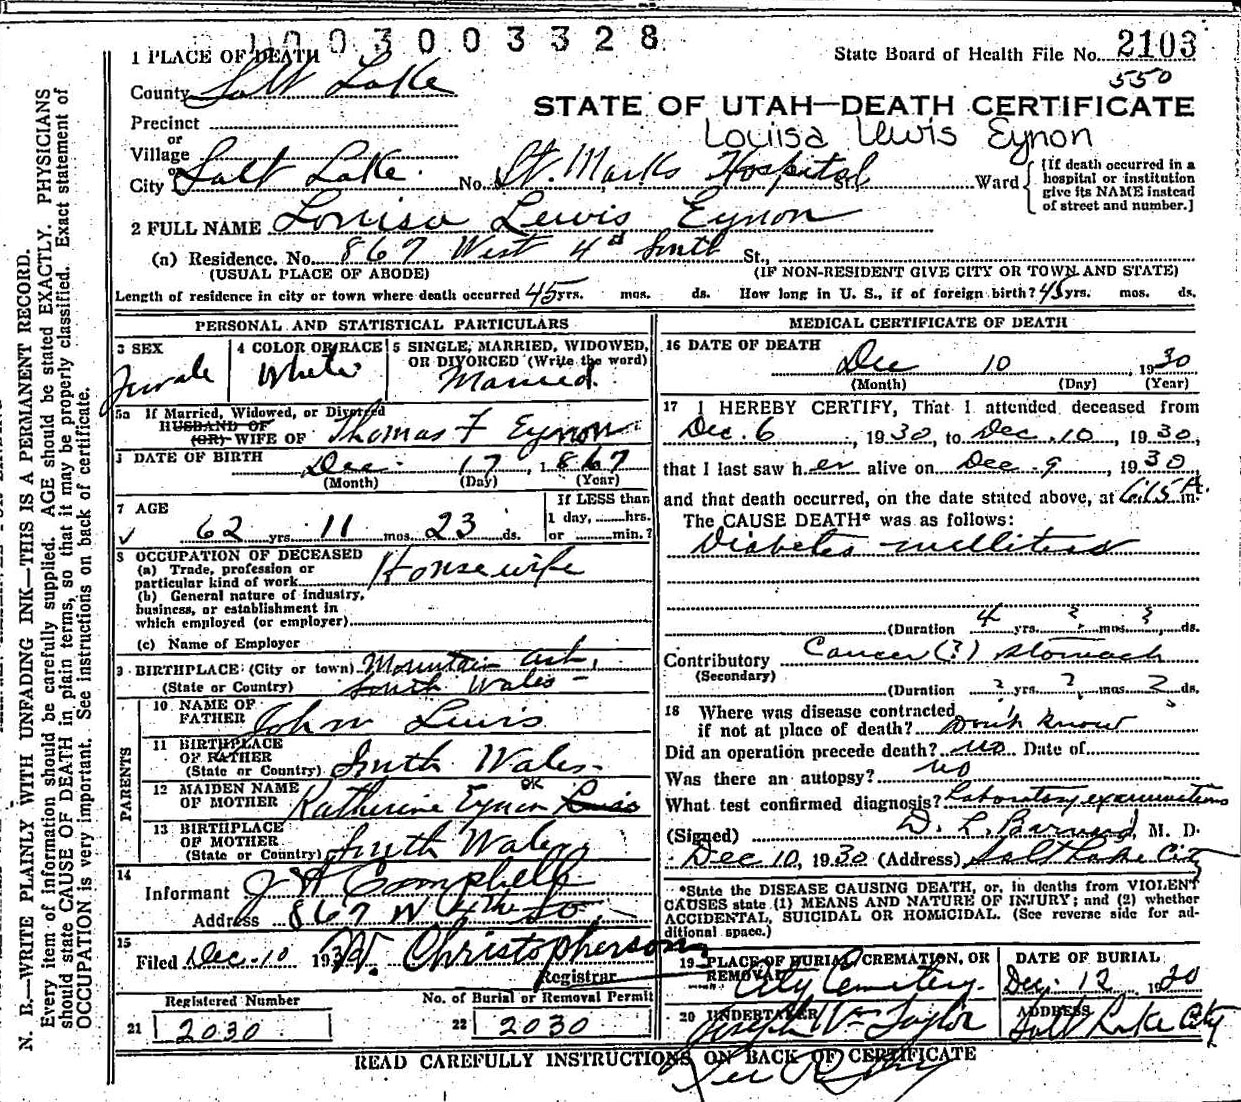 003003328
1 PLACE OF DEATH
State Board of Health File No. 2103
550
County Salt Lake
STATE OF UTAH—DEATH CERTIFICATE
Precinct
Louiisa Lewis Eynon
or
Village
or
City Salt Lake. No. St. Marks Hospital St., Ward
[If death occurred in a hospital or institution give its NAME instead of street and number.]
2 FULL NAME Louisa Lewis Eynon
(a) Residence. No. 867 West 4th South St.,
(USUAL PLACE OF ABODE) (IF NON-RESIDENT GIVE CITY OR TOWN AND STATE)
Length of residence in city or town where death occurred 45 yrs. mos. ds. How long in U. S., if of foreign birth? 45 yrs. mos. ds.
PERSONAL AND STATISTICAL PARTICULARS
3 SEX Female
4 COLOR OR RACE White
5 SINGLE, MARRIED, WIDOWED, OR DIVORCED (Write the word) Married.
5a If Married, Widowed, or Divorced
HUSBAND OF
(OR) WIFE OF Thomas F Eynon
DATE OF BIRTH Dec. 17, 1867
(Month) (Day) (Year)
7 AGE 62 yrs. 11 mos. 23 ds.
If LESS than
1 day, hrs.
or min.?
8 OCCUPATION OF DECEASED
(a) Trade, profession or
particular kind of work Housewife
(b) General nature of industry,
business, or establishment in
which employed (or employer)
(c) Name of Employer
9 BIRTHPLACE (City or town) Mountain Ash,
(State or Country) South Wales
PARENTS
10 NAME OF
FATHER John Lewis
11 BIRTHPLACE
OF FATHER
(State or Country) South Wales
12 MAIDEN NAME
OF MOTHER Katherine Eynon OK Lewis
13 BIRTHPLACE
OF MOTHER
(State or Country) South Wales
14
Informant J H Campbell
Address 867 W 4th So
15
Filed Dec. 10 193 W. Christopherson
Registrar
Registered Number
21 2030
No. of Burial or Removal Permit
22 2030
MEDICAL CERTIFICATE OF DEATH
16 DATE OF DEATH
Dec 10, 1930
(Month) (Day) (Year)
17 I HEREBY CERTIFY, That I attended deceased from
Dec. 6, 1930, to Dec. 10, 1930,
that I last saw her alive on Dec. 9, 1930,
and that death occurred, on the date stated above, at 6:15 m.
The CAUSE DEATH* was as follows:
Diabetes mellitus
(Duration 4 yrs. ? mos. ? ds.
Contributory Cancer (?) stomach
(Secondary)
(Duration ? yrs. ? mos. ? ds.
18 Where was disease contracted
if not at place of death? Don't know
Did an operation precede death? no Date of
Was there an autopsy? no
What test confirmed diagnosis? Laboratory examinations
(Signed) D. L. Barnard, M. D.
Dec 10, 1930 (Address) Salt Lake City
*State the DISEASE CAUSING DEATH, or, in deaths from VIOLENT
CAUSES state (1) MEANS AND NATURE OF INJURY; and (2) whether
ACCIDENTAL, SUICIDAL OR HOMICIDAL. (See reverse side for ad-
ditional space.)
19 PLACE OF BURIAL, CREMATION, OR
REMOVAL
City Cemetery.
DATE OF BURIAL
Dec. 12 1930
20 UNDERTAKER
Joseph Wm Taylor
ADDRESS
Salt Lake City
READ CAREFULLY INSTRUCTIONS ON BACK OF CERTIFICATE
N. B.—WRITE PLAINLY WITH UNFADING INK—THIS IS A PERMANENT RECORD.
Every item of information should be carefully supplied. AGE should be stated EXACTLY. PHYSICIANS
should state CAUSE OF DEATH in plain terms, so that it may be properly classified. Exact statement of
OCCUPATION is very important. See instructions on back of certificate.